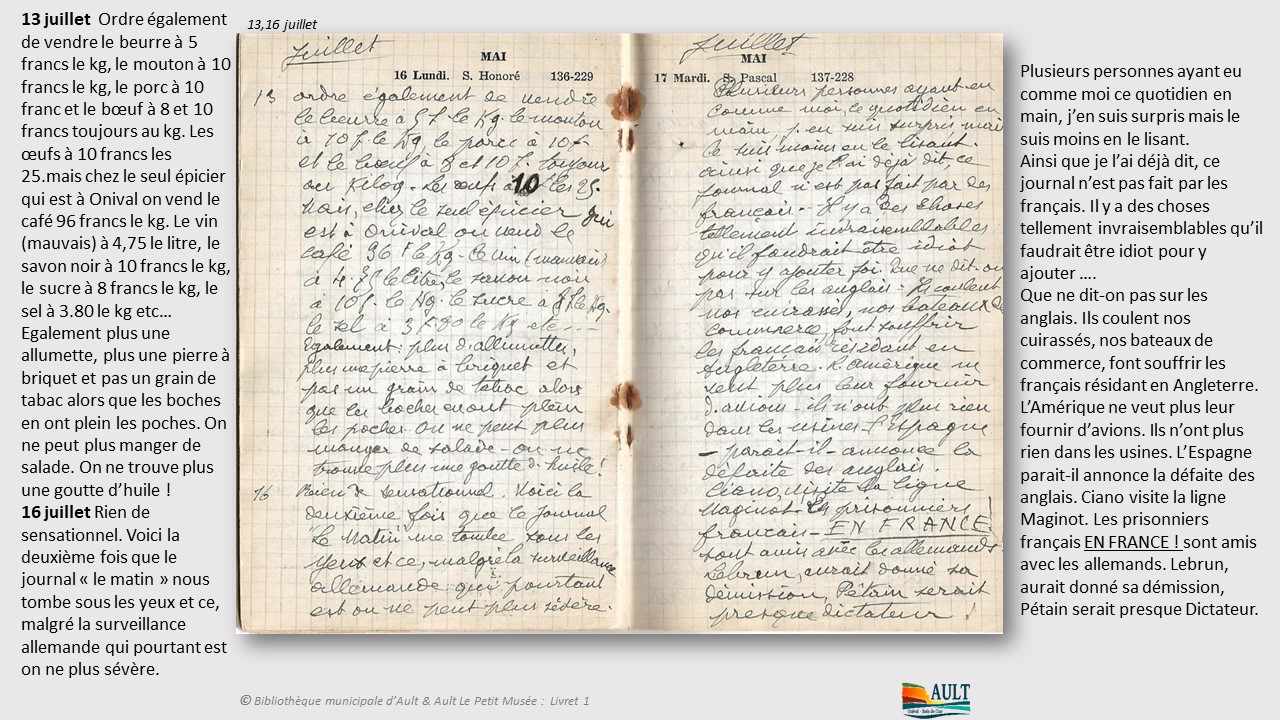 13 juillet Ordre également
de vendre le beurre à 5
francs le kg, le mouton à 10
francs le kg, le porc à 10
franc et le bœuf à 8 et 10
francs toujours au kg. Les
œufs à 10 francs les
25.mais chez le seul épicier
qui est à Onival on vend le
café 96 francs le kg. Le vin
(mauvais) à 4,75 le litre, le
savon noir à 10 francs le kg,
le sucre à 8 francs le kg, le
sel à 3.80 le kg etc…
Egalement plus une
allumette, plus une pierre à
briquet et pas un grain de
tabac alors que les boches
en ont plein les poches. On
ne peut plus manger de
salade. On ne trouve plus
une goutte d’huile !
16 juillet Rien de
sensationnel. Voici la
deuxième fois que le
journal « le matin » nous
tombe sous les yeux et ce,
malgré la surveillance
allemande qui pourtant est
on ne plus sévère.
13,16 juillet
juillet
MAI
16 Lundi. S. Honoré 136-229
13 ordre également de vendre
le beurre à 5 f. le Kg. le mouton
à 10 f. le Kg le porc à 10 f
et le bœuf à 8 et 10 f. toujours
au Kilog - Les œufs à 10 f les 25.
Mais, chez le seul épicier qui
est à Onival on vend le
café 96 f le Kg - Le vin (mauvais)
à le litre, le savon noir
à 10 f. le Kg. le sucre à 8 f le Kg.
le sel à 3 f.80 le Kg etc ---
également: plus d'allumettes,
plus une pierre à briquet et
pas un grain de tabac alors
que les boches en ont plein
les poches. On ne peut plus
manger de salade - on ne
trouve plus une goutte d'huile!
16 Rien de sensationnel. Voici la
deuxième fois que le journal
"Le Matin" me tombe sous les
yeux et ce, malgré la surveillance
allemande qui pourtant
est on ne peut plus sévère.
juillet
MAI
17 Mardi. S. Pascal 137-228
Plusieurs personnes ayant eu
comme moi ce quotidien en
main, j'en suis surpris mais
le suis moins en le lisant.
ainsi que je l'ai déjà dit, ce
journal n'est pas fait par des
français - Il y a des choses
tellement invraisemblables
qu'il faudrait être idiot
pour y ajouter foi. Que ne dit-on
pas sur les anglais - Ils coulent
nos cuirassés, nos bateaux de
commerce, font souffrir
les français résidant en
Angleterre. L'Amérique ne
veut plus leur fournir
d'avions - ils n'ont plus rien
dans les usines - L'Espagne
- parait-il - annonce la
défaite des anglais.
Ciano, visite la ligne
Maginot - Les prisonniers
français - EN FRANCE!
sont amis avec les allemands.
Lebrun, aurait donné sa
démission, Pétain serait
presque dictateur !
Plusieurs personnes ayant eu
comme moi ce quotidien en
main, j’en suis surpris mais le
suis moins en le lisant.
Ainsi que je l’ai déjà dit, ce
journal n’est pas fait par les
français. Il y a des choses
tellement invraisemblables qu’il
faudrait être idiot pour y
ajouter ….
Que ne dit-on pas sur les
anglais. Ils coulent nos
cuirassés, nos bateaux de
commerce, font souffrir les
français résidant en Angleterre.
L’Amérique ne veut plus leur
fournir d’avions. Ils n’ont plus
rien dans les usines. L’Espagne
parait-il annonce la défaite des
anglais. Ciano visite la ligne
Maginot. Les prisonniers
français EN FRANCE ! sont amis
avec les allemands. Lebrun,
aurait donné sa démission,
Pétain serait presque Dictateur.
© Bibliothèque municipale d’Ault & Ault Le Petit Musée : Livret 1
AULT